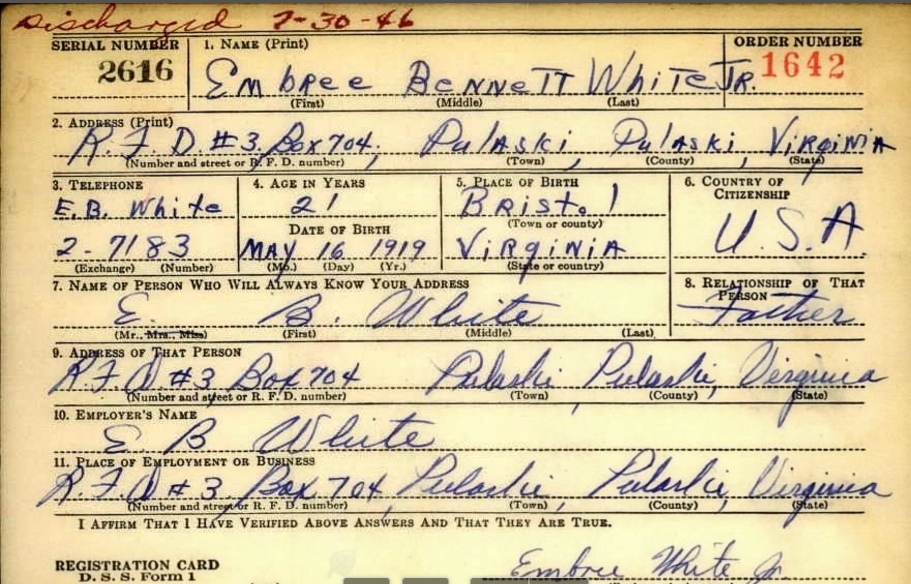 Discharged 7-30-46
SERIAL NUMBER 1. NAME (Print) ORDER NUMBER
2616 EMBREE BENNETT WHITE JR. 1642
(First) (Middle) (Last)
2. ADDRESS (Print)
R.F.D. #3, Box 704, Pulaski, Pulaski, Virginia
(Number and street or R. F. D. number) (Town) (County) (State)
3. TELEPHONE 4. AGE IN YEARS 5. PLACE OF BIRTH 6. COUNTRY OF CITIZENSHIP
E.B. White 21 Bristol
DATE OF BIRTH (Town or county) U.S.A
2-7183 MAY 16 1919 VIRGINIA
(Exchange) (Number) (Mo.) (Day) (Yr.) (State or country)
7. NAME OF PERSON WHO WILL ALWAYS KNOW YOUR ADDRESS 8. RELATIONSHIP OF THAT PERSON
E. B. White Father
(Mr., Mrs., Miss) (First) (Middle) (Last)
9. ADDRESS OF THAT PERSON
R.F.D #3 Box 704 Pulaski, Pulaski, Virginia
(Number and street or R. F. D. number) (Town) (County) (State)
10. EMPLOYER'S NAME
E B White
11. PLACE OF EMPLOYMENT OR BUSINESS
R.F.D #3 Box 704, Pulaski, Pulaski, Virginia
(Number and street or R. F. D. number) (Town) (County) (State)
I AFFIRM THAT I HAVE VERIFIED ABOVE ANSWERS AND THAT THEY ARE TRUE.
REGISTRATION CARD Embree White Jr
D. S. S. Form 1